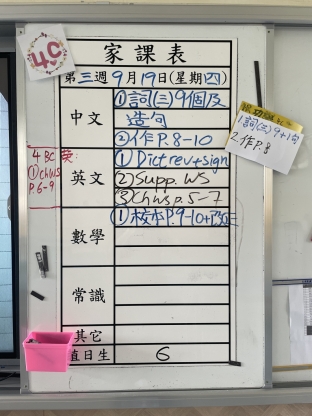 4C
家課表
第三週9月19日(星期四)
中文
①詞(三)9個及
造句
②作P.8-10
英文
①Dict rev+sign
②Supp. WS
③Ch WS p.5-7
數學
①校本P.9-10+改正
常識
其它
值日生
6
4BC英:
①Ch WS
P.6-9
1詞(三)9+1句
2.作P.8